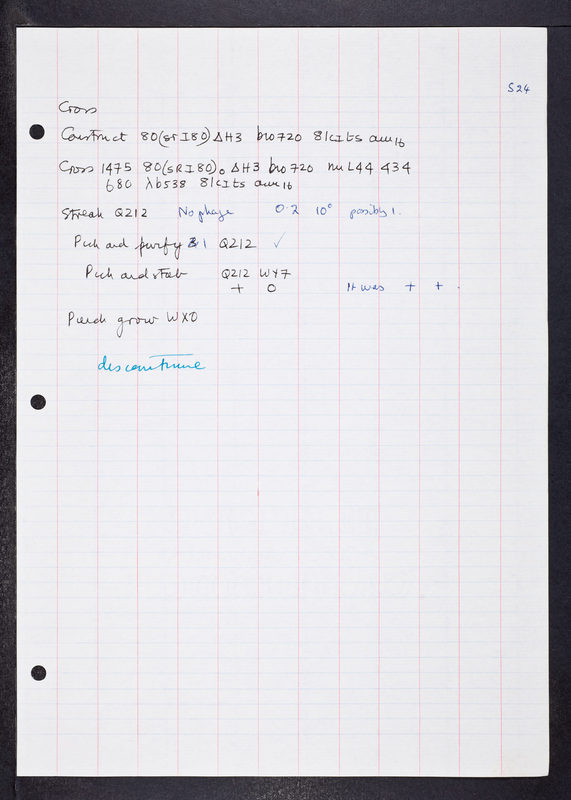 S24
Cross
Construct 80(srI80)ΔH3 bio720 81cIts am16
Cross 1475 80(sRI80)o ΔH3 bio720 nuL44 434
680 λb538 81cIts am16
Streak Q212 No phage 0.2 10° possibly 1.
Pick and purify 1 Q212 ✓
Pick and stab Q212 WX7
+ 0 It was + + .
Pick grow WX0
discontinue